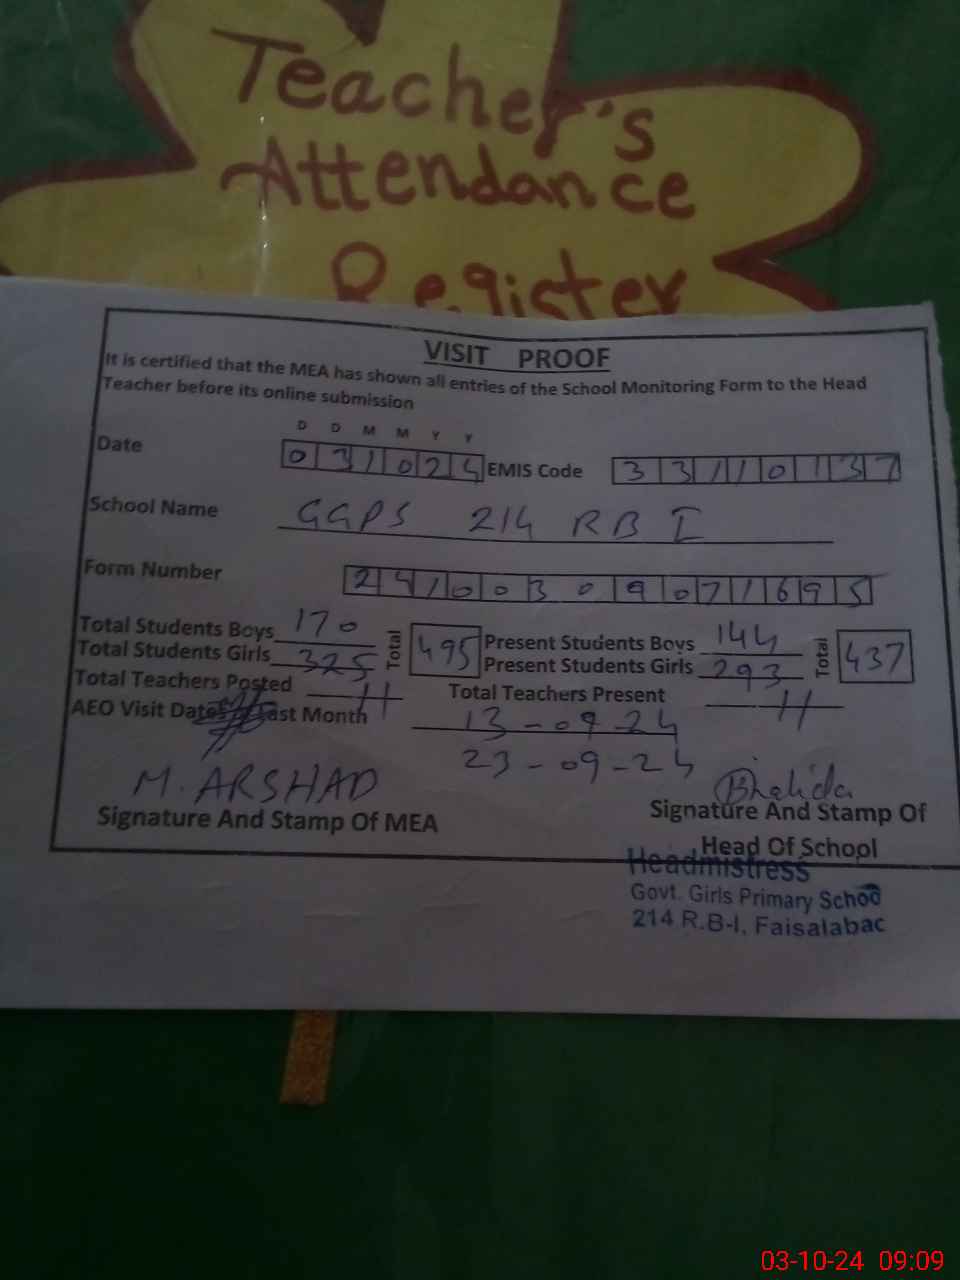 Teacher's
Attendance
Register
VISIT PROOF
It is certified that the MEA has shown all entries of the School Monitoring Form to the Head
Teacher before its online submission
D D M M Y Y
Date 031024 EMIS Code 33110137
School Name GGPS 214 RB I
Form Number 24100309071695
Total Students Boys 170 Total 495 Present Students Boys 144 Total 437
Total Students Girls 325 Present Students Girls 293
Total Teachers Posted 11 Total Teachers Present 11
AEO Visit Dates Last Month 13-09-24
23-09-24
M. ARSHAD
Signature And Stamp Of MEA Signature And Stamp Of
Head Of School
Headmistress
Govt. Girls Primary Schoo
214 R.B-I, Faisalabad
03-10-24 09:09